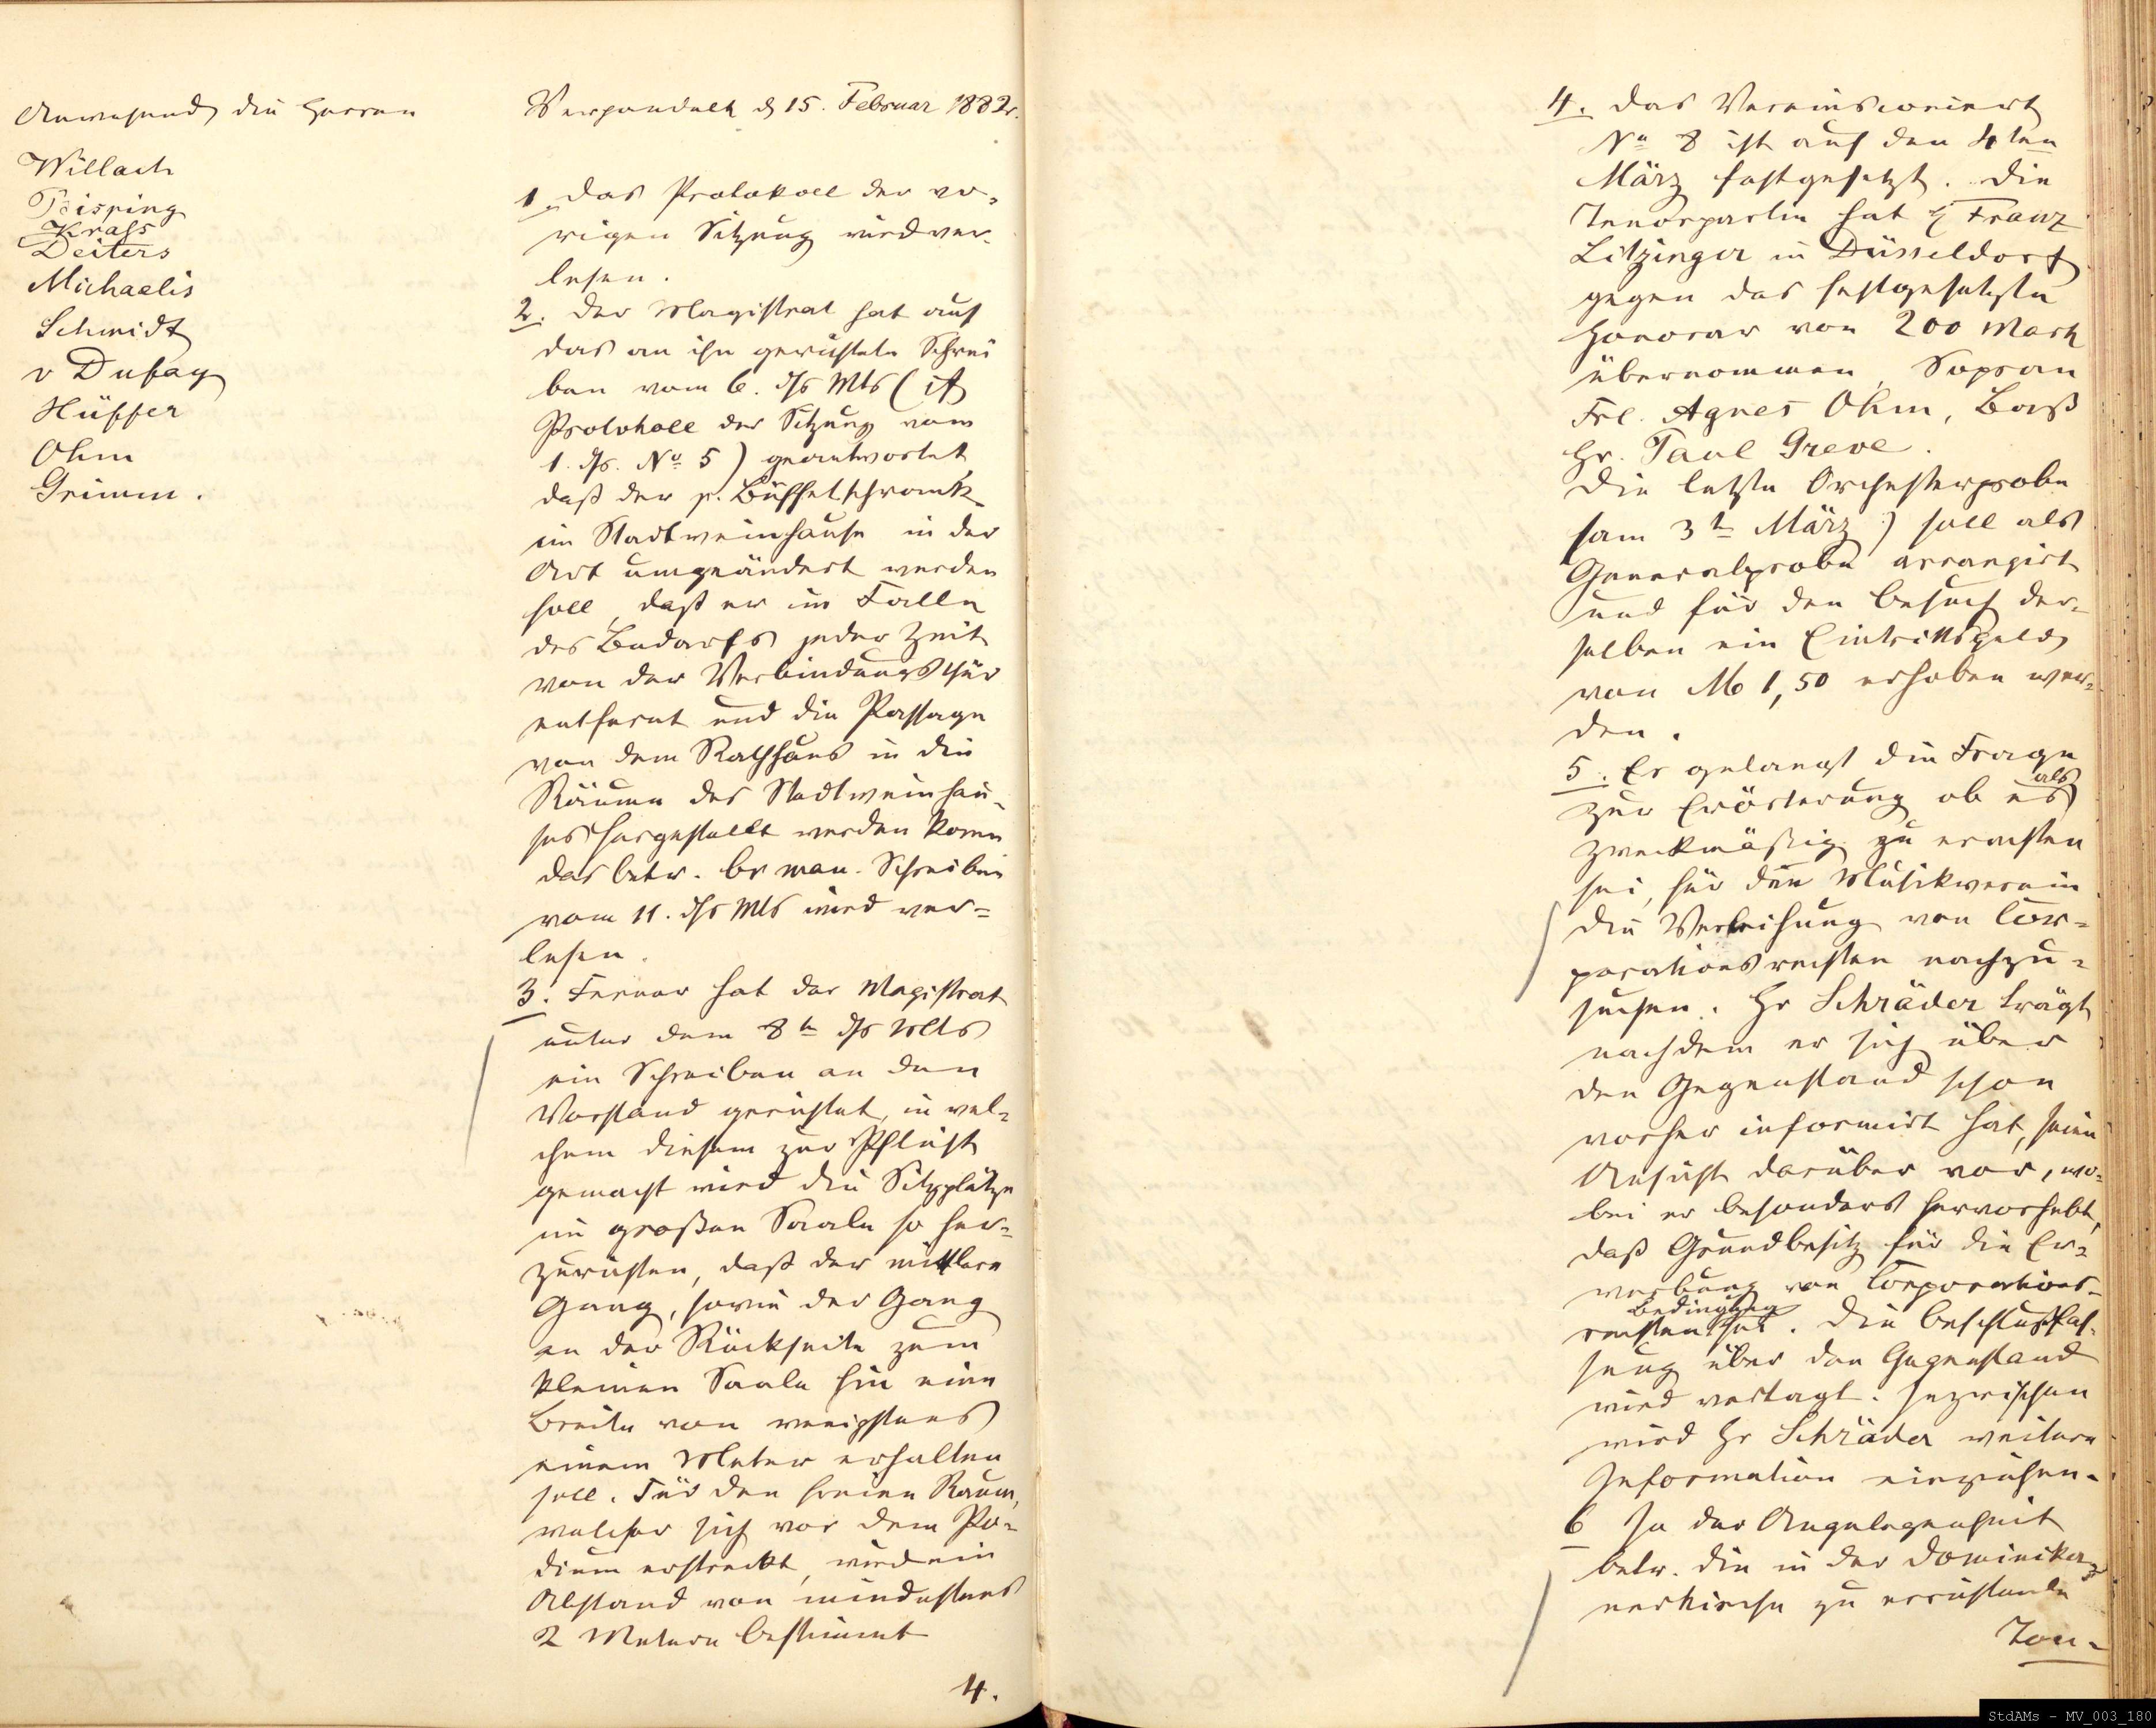 Anwesend die Herren
Willach
Peisping
Krass
Deiters
Michaelis
Schmidt
v Dufay
Hüffer
Ohm
Grimm.
Verhandelt d 15. Februar 1882.
1. Das Protokoll der vo-
rigen Sitzung wird ver-
lesen.
2. Der Magistrat hat auf
das an ihn gerichtete Schrei
ben vom 6. ds Mts (cf
Protokoll der Sitzung vom
1. ds. No 5) geantwortet,
daß der p. Büffetschrank
im Stadtweinhause in der
Art umgeändert werden
soll, daß er im Falle
des Bedarfs jeder Zeit
von der Verbindungsthür
entfernt und die Passage
von dem Rathhaus in die
Räume des Stadtweinhau-
ses hergestellt werden könne
das betr. br man. Schreiben
vom 11. ds Mts wird ver=
lesen.
3. Ferner hat der Magistrat
unter dem 8ten ds Mts
ein Schreiben an den
Vorstand gerichtet, in wel-
chem diesem zur Pflicht
gemacht wird die Sitzplätze
im großen Saale so her-
zurichten, daß der mittlere
Gang, sowie der Gang
an der Rückseite zum
kleinen Saale hin eine
Breite von wenigstens
einem Meter erhalten
soll. Für den freien Raum,
welcher sich vor dem Po-
dium erstreckt, wird ein
Abstand von mindestens
2 Metern bestimmt
4.
4. Das Vereinsconcert
No 8 ist auf den 4ten
März festgesetzt. Die
Tenorpartie hat H Franz
Litzinger in Düsseldorf
gegen das festgesetzte
Honorar von 200 Mark
übernommen, Sopran
Frl. Agnes Ohm, Baß
Hr. Paul Greve.
Die letzte Orchesterprobe
(am 3t März) soll als
Generalprobe arrangirt
und für den Besuch der-
selben ein Eintrittsgeld
von M 1,50 erhoben wer-
den.
5. Es gelangt die Frage
zur Erörterung ob es als
zweckmäßig zu erachten
sei, für den Musikverein
die Verleihung von Cor=
porationsrechten nachzu=
suchen. Hr Schräder trägt
nachdem er sich über
den Gegenstand schon
vorher informirt hat, seine
Ansicht darüber vor, wo-
bei er besonders hervorhebt,
daß Grundbesitz für die Er=
werbung von Corporations-
rechten Bedingung sei. Die Beschlußfas-
sung über den Gegenstand
wird vertagt. Inzwischen
wird Hr Schräder weitere
Information einziehen.
6 In der Angelegenheit
betr. die in der Dominika-
nerkirche zu errichtende
Ton-
StdAMs - MV_003_180